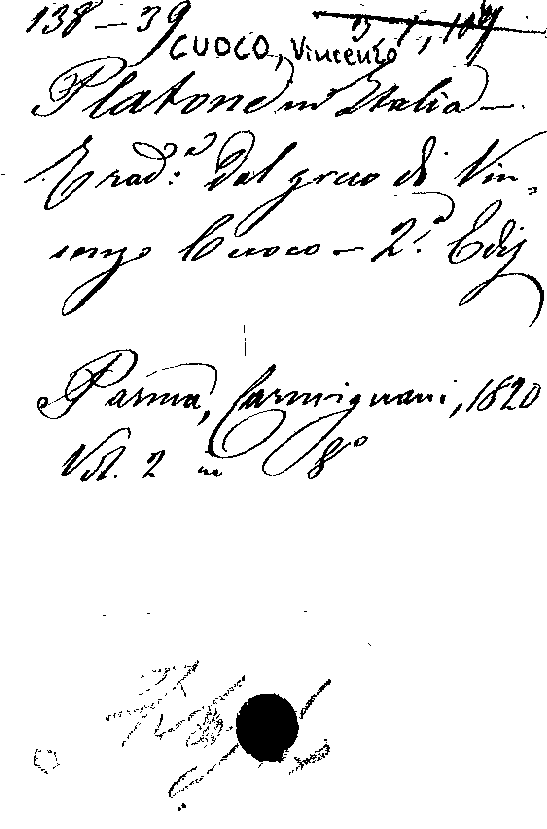 138-39 3, 1, 107
CUOCO, Vincenzo
Platone in Italia -
Trad:ª Dal greco di Vin-
cenzo Cuoco - 2.ª Ediz
Parma, Carmignani, 1820
Vol. 2 in 8º